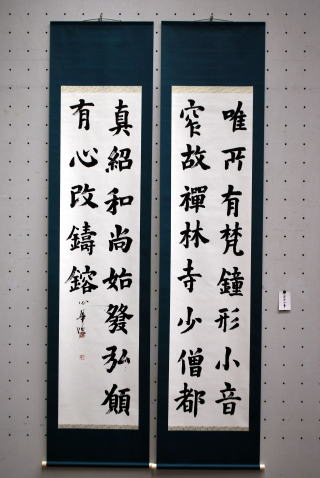 唯所有梵鐘形小音
窄故禪林寺少僧都
真紹和尚始發弘願
有心改鑄鎔
心華臨